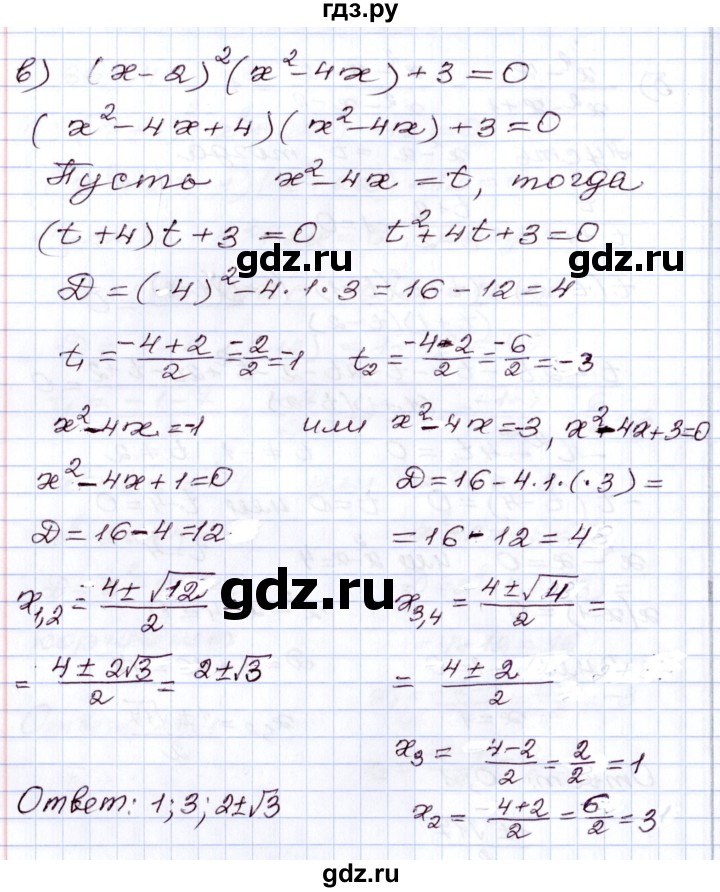 гдз.ру
в) (x-2)²(x²-4x)+3=0
(x²-4x+4)(x²-4x)+3=0
Пусть x²-4x=t, тогда
(t+4)t+3=0 t²+4t+3=0
gdz.ru gdz.ru
D=(4)²-4·1·3=16-12=4
t₁=(-4+2)/2=-2/2=-1 t₂=(-4-2)/2=-6/2=-3
x²-4x=-1 или x²-4x=-3, x²-4x+3=0
x²-4x+1=0 D=16-4·1·(·3)=
D=16-4=12 =16-12=4
gdz.ru
x₁,₂=(4±√12)/2 x₃,₄=(4±√4)/2=
=(4±2√3)/2=2±√3 =(4±2)/2
x₃=(4-2)/2=2/2=1
Ответ: 1; 3; 2±√3 x₂=(4+2)/2=6/2=3
gdz.ru gdz.ru
gdz.ru